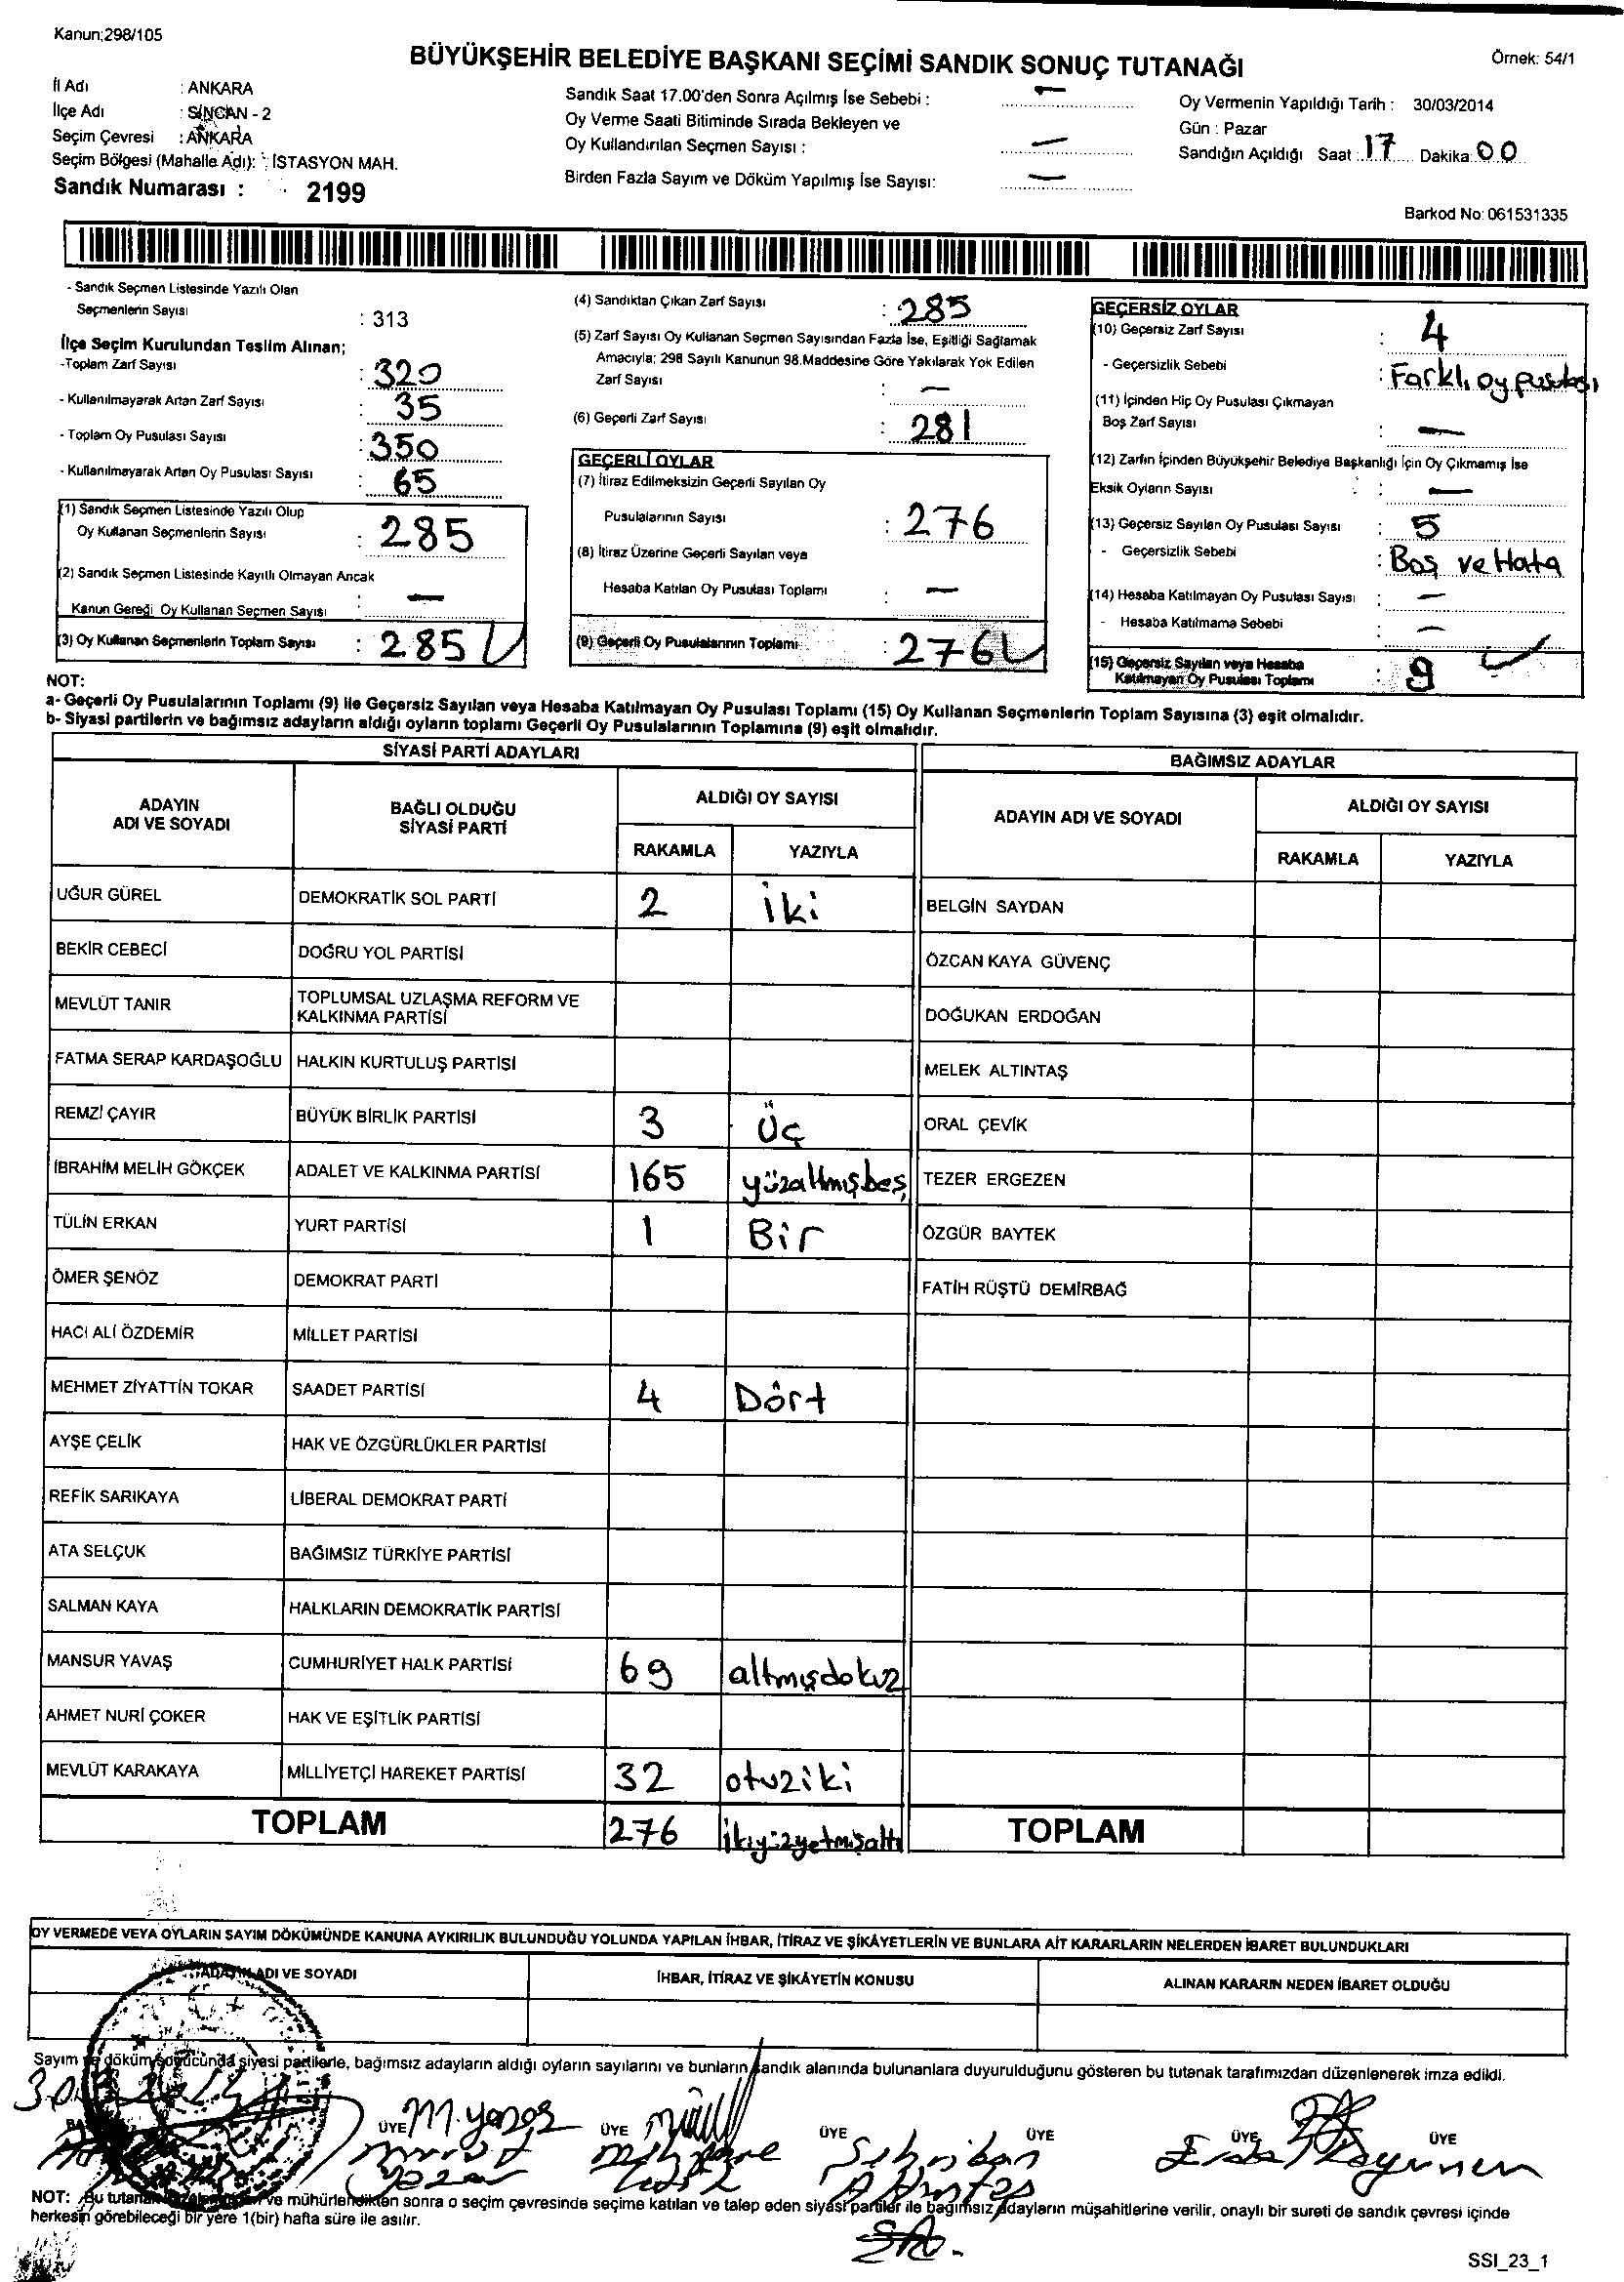 Kanun;298/105
BÜYÜKŞEHİR BELEDİYE BAŞKANI SEÇİMİ SANDIK SONUÇ TUTANAĞI
Örnek: 54/1
İl Adı : ANKARA
İlçe Adı : SİNCAN - 2
Seçim Çevresi : ANKARA
Seçim Bölgesi (Mahalle Adı): İSTASYON MAH.
Sandık Numarası : 2199
Sandık Saat 17.00'den Sonra Açılmış İse Sebebi : —
Oy Verme Saati Bitiminde Sırada Bekleyen ve
Oy Kullandırılan Seçmen Sayısı : —
Birden Fazla Sayım ve Döküm Yapılmış İse Sayısı: —
Oy Vermenin Yapıldığı Tarih : 30/03/2014
Gün : Pazar
Sandığın Açıldığı Saat 17 Dakika 00
Barkod No: 061531335
- Sandık Seçmen Listesinde Yazılı Olan
Seçmenlerin Sayısı : 313
İlçe Seçim Kurulundan Teslim Alınan;
-Toplam Zarf Sayısı : 320
- Kullanılmayarak Artan Zarf Sayısı : 35
- Toplam Oy Pusulası Sayısı : 350
- Kullanılmayarak Artan Oy Pusulası Sayısı : 65
(1) Sandık Seçmen Listesinde Yazılı Olup
Oy Kullanan Seçmenlerin Sayısı : 285
(2) Sandık Seçmen Listesinde Kayıtlı Olmayan Ancak
Kanun Gereği Oy Kullanan Seçmen Sayısı : —
(3) Oy Kullanan Seçmenlerin Toplam Sayısı : 285
(4) Sandıktan Çıkan Zarf Sayısı : 285
(5) Zarf Sayısı Oy Kullanan Seçmen Sayısından Fazla İse, Eşitliği Sağlamak
Amacıyla; 298 Sayılı Kanunun 98.Maddesine Göre Yakılarak Yok Edilen
Zarf Sayısı : —
(6) Geçerli Zarf Sayısı : 281
GEÇERLİ OYLAR
(7) İtiraz Edilmeksizin Geçerli Sayılan Oy
Pusulalarının Sayısı : 276
(8) İtiraz Üzerine Geçerli Sayılan veya
Hesaba Katılan Oy Pusulası Toplamı : —
(9) Geçerli Oy Pusulalarının Toplamı : 276
GEÇERSİZ OYLAR
(10) Geçersiz Zarf Sayısı : 4
- Geçersizlik Sebebi : Farklı oy pusulası
(11) İçinden Hiç Oy Pusulası Çıkmayan
Boş Zarf Sayısı : —
(12) Zarfın İçinden Büyükşehir Belediye Başkanlığı İçin Oy Çıkmamış İse
Eksik Oyların Sayısı : —
(13) Geçersiz Sayılan Oy Pusulası Sayısı : 5
- Geçersizlik Sebebi : Boş ve Hata
(14) Hesaba Katılmayan Oy Pusulası Sayısı : —
- Hesaba Katılmama Sebebi : —
(15) Geçersiz Sayılan veya Hesaba
Katılmayan Oy Pusulası Toplamı : 9
NOT:
a- Geçerli Oy Pusulalarının Toplamı (9) ile Geçersiz Sayılan veya Hesaba Katılmayan Oy Pusulası Toplamı (15) Oy Kullanan Seçmenlerin Toplam Sayısına (3) eşit olmalıdır.
b- Siyasi partilerin ve bağımsız adayların aldığı oyların toplamı Geçerli Oy Pusulalarının Toplamına (9) eşit olmalıdır.
SİYASİ PARTİ ADAYLARI
ADAYIN ADI VE SOYADI
BAĞLI OLDUĞU SİYASİ PARTİ
ALDIĞI OY SAYISI
RAKAMLA YAZIYLA
UĞUR GÜREL DEMOKRATİK SOL PARTİ 2 iki
BEKİR CEBECİ DOĞRU YOL PARTİSİ
MEVLÜT TANIR TOPLUMSAL UZLAŞMA REFORM VE KALKINMA PARTİSİ
FATMA SERAP KARDAŞOĞLU HALKIN KURTULUŞ PARTİSİ
REMZİ ÇAYIR BÜYÜK BİRLİK PARTİSİ 3 Üç
İBRAHİM MELİH GÖKÇEK ADALET VE KALKINMA PARTİSİ 165 yüzaltmışbeş
TÜLİN ERKAN YURT PARTİSİ 1 Bir
ÖMER ŞENÖZ DEMOKRAT PARTİ
HACI ALİ ÖZDEMİR MİLLET PARTİSİ
MEHMET ZİYATTİN TOKAR SAADET PARTİSİ 4 Dört
AYŞE ÇELİK HAK VE ÖZGÜRLÜKLER PARTİSİ
REFİK SARIKAYA LİBERAL DEMOKRAT PARTİ
ATA SELÇUK BAĞIMSIZ TÜRKİYE PARTİSİ
SALMAN KAYA HALKLARIN DEMOKRATİK PARTİSİ
MANSUR YAVAŞ CUMHURİYET HALK PARTİSİ 69 altmışdokuz
AHMET NURİ ÇOKER HAK VE EŞİTLİK PARTİSİ
MEVLÜT KARAKAYA MİLLİYETÇİ HAREKET PARTİSİ 32 otuziki
TOPLAM 276 ikiyüzyetmişaltı
BAĞIMSIZ ADAYLAR
ADAYIN ADI VE SOYADI
ALDIĞI OY SAYISI
RAKAMLA YAZIYLA
BELGİN SAYDAN
ÖZCAN KAYA GÜVENÇ
DOĞUKAN ERDOĞAN
MELEK ALTINTAŞ
ORAL ÇEVİK
TEZER ERGEZEN
ÖZGÜR BAYTEK
FATİH RÜŞTÜ DEMİRBAĞ
TOPLAM
OY VERMEDE VEYA OYLARIN SAYIM DÖKÜMÜNDE KANUNA AYKIRILIK BULUNDUĞU YOLUNDA YAPILAN İHBAR, İTİRAZ VE ŞİKÂYETLERİN VE BUNLARA AİT KARARLARIN NELERDEN İBARET BULUNDUKLARI
ADAYIN ADI VE SOYADI
İHBAR, İTİRAZ VE ŞİKÂYETİN KONUSU
ALINAN KARARIN NEDEN İBARET OLDUĞU
Sayım ve döküm sonucunda siyasi partilerle, bağımsız adayların aldığı oyların sayılarını ve bunların sandık alanında bulunanlara duyurulduğunu gösteren bu tutanak tarafımızdan düzenlenerek imza edildi.
ÜYE M. yazar ÜYE ÜYE ÜYE ÜYE ÜYE
NOT: Bu tutanak ve mühürlendikten sonra o seçim çevresinde seçime katılan ve talep eden siyasi partiler ile bağımsız adayların müşahitlerine verilir, onaylı bir sureti de sandık çevresi içinde
herkesin görebileceği bir yere 1(bir) hafta süre ile asılır.
SSI_23_1